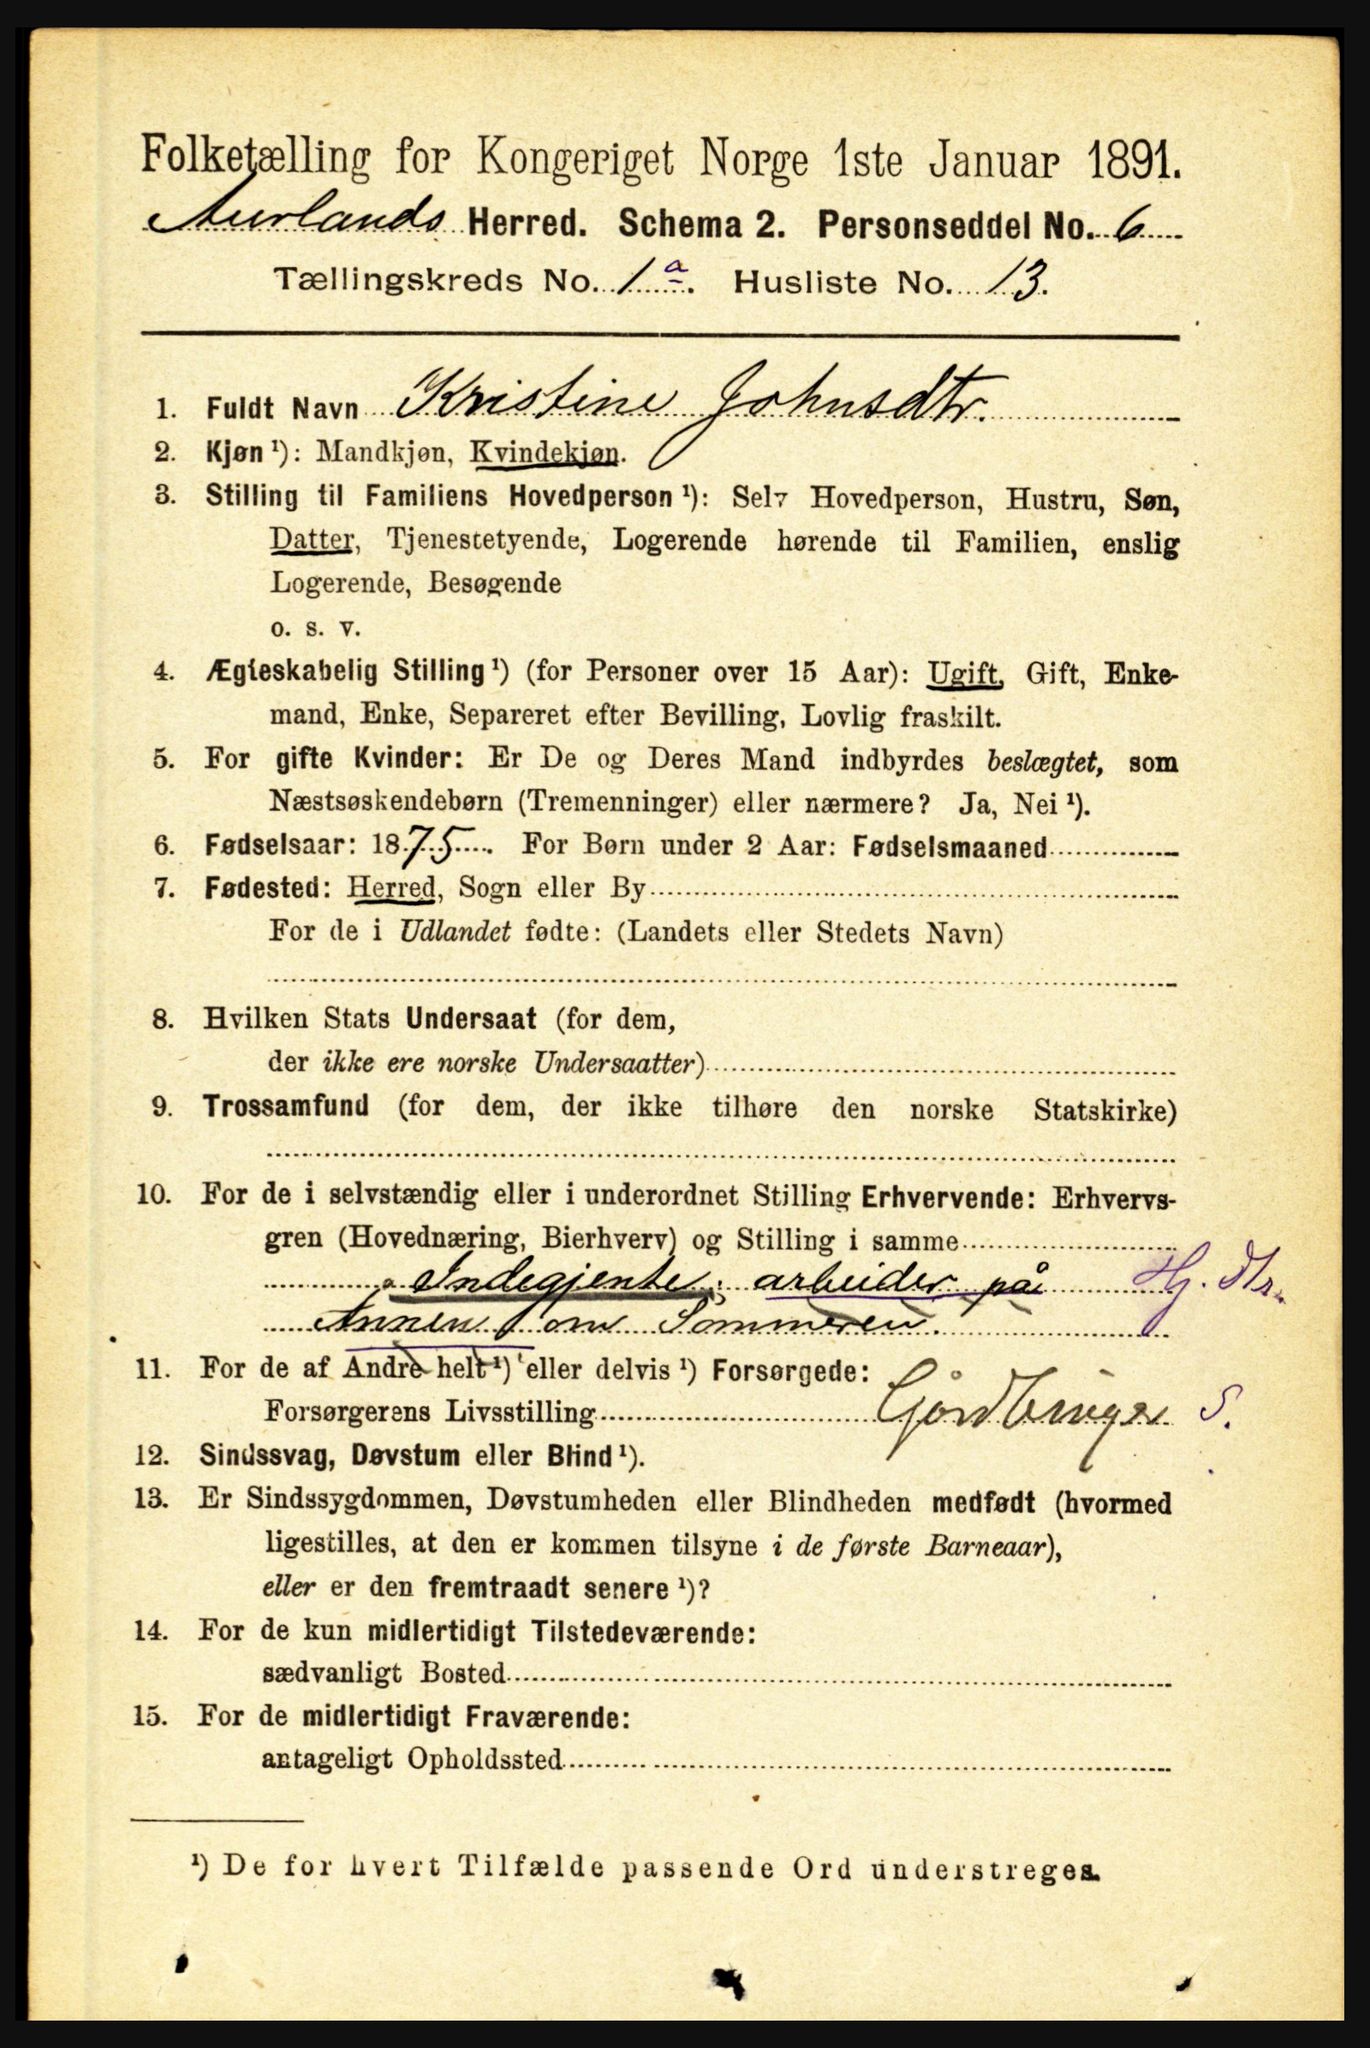 Folketælling for Kongeriget Norge 1ste Januar 1891.
Aurlands Herred. Schema 2. Personseddel No. 6
Tællingskreds No. 1a. Husliste No. 13.
1. Fuldt Navn Kristine Johnsdtr.
2. Kjøn ¹): Mandkjøn, Kvindekjøn.
3. Stilling til Familiens Hovedperson ¹): Selv Hovedperson, Hustru, Søn,
Datter, Tjenestetyende, Logerende hørende til Familien, enslig
Logerende, Besøgende
o. s. v.
4. Ægteskabelig Stilling ¹) (for Personer over 15 Aar): Ugift, Gift, Enke-
mand, Enke, Separeret efter Bevilling, Lovlig fraskilt.
5. For gifte Kvinder: Er De og Deres Mand indbyrdes beslægtet, som
Næstsøskendebørn (Tremenninger) eller nærmere? Ja, Nei ¹).
6. Fødselsaar: 1875. For Børn under 2 Aar: Fødselsmaaned
7. Fødested: Herred, Sogn eller By
For de i Udlandet fødte: (Landets eller Stedets Navn)
8. Hvilken Stats Undersaat (for dem,
der ikke ere norske Undersaatter)
9. Trossamfund (for dem, der ikke tilhøre den norske Statskirke)
10. For de i selvstændig eller i underordnet Stilling Erhvervende: Erhvervs-
gren (Hovednæring, Bierhverv) og Stilling i samme
Indegjente. arbeider på Hj. dtr.
om Sommeren.
11. For de af Andre helt ¹) eller delvis ¹) Forsørgede:
Forsørgerens Livsstilling Gårdbruger S.
12. Sindssvag, Døvstum eller Blind ¹).
13. Er Sindssygdommen, Døvstumheden eller Blindheden medfødt (hvormed
ligestilles, at den er kommen tilsyne i de første Barneaar),
eller er den fremtraadt senere ¹)?
14. For de kun midlertidigt Tilstedeværende:
sædvanligt Bosted
15. For de midlertidigt Fraværende:
antageligt Opholdssted
¹) De for hvert Tilfælde passende Ord understreges.